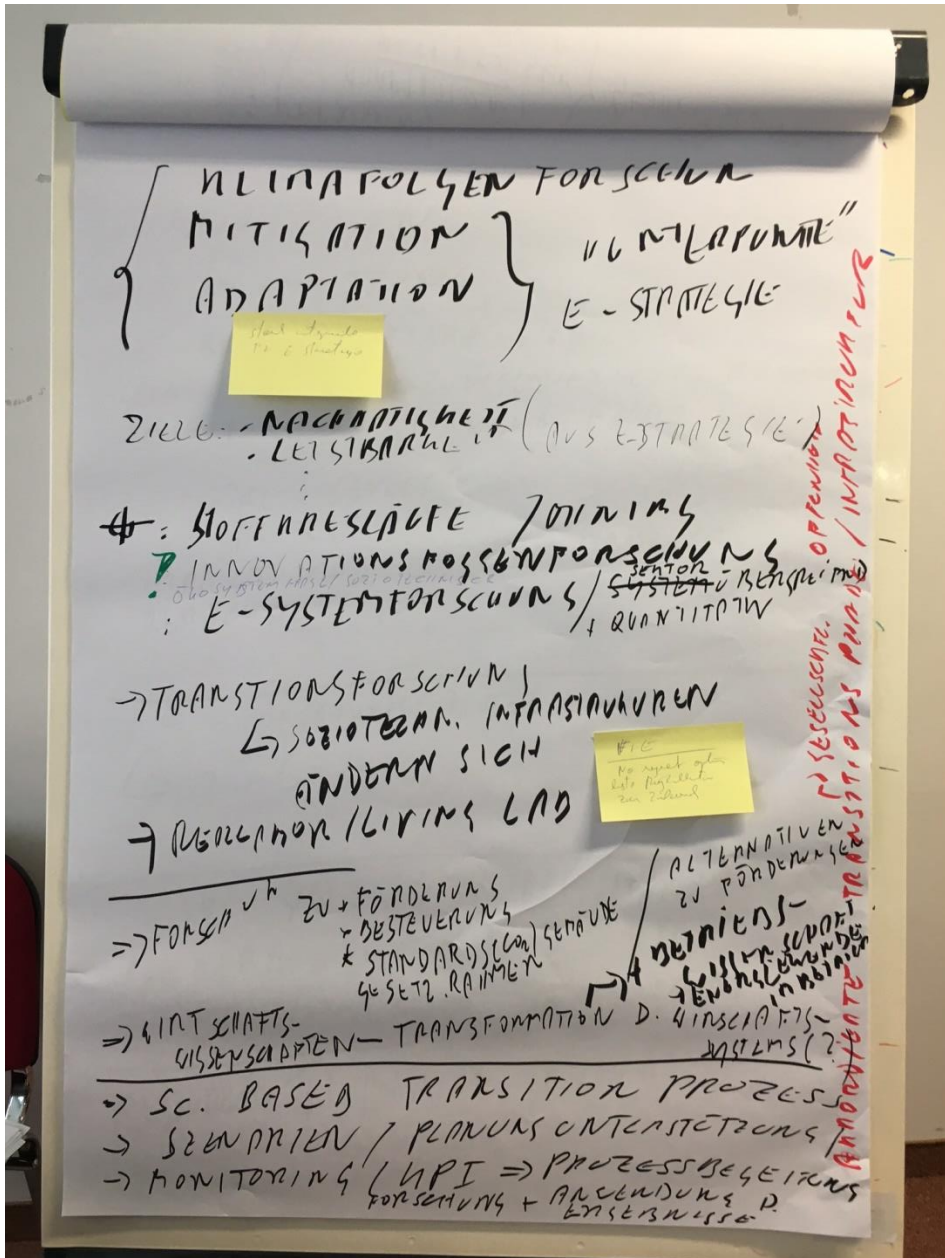 KLIMAFOLGEN FORSCHUN
MITIGATION
ADAPTATION
"UNTERPUNKTE"
E-STRATEGIE
ZIELE: - NACHHALTIGKEIT (AUS E-STRATEGIE)
- LEISTBARKEIT
: STOFFKREISLÄUFE / MINING
? INNOVATIONSFOLGENFORSCHUNG
: E-SYSTEMFORSCHUNG / SEKTOR ÜBERGREIFEND
+ QUANTITATIV
→ TRANSTIONSFORSCHUNG
↳ SOZIOTECHN. INFRASTRUKUREN
ÄNDERN SICH
No regret
→ REALLABOR / LIVING LAB
⇒ FORSCHUN ZU * FÖRDERUNG
* BESTEUERUNG
* STANDARDS (CO2) GEBÄUDE
GESETZ. RAHMEN
/ ALTERNATIVEN
ZU FÖRDERUNGEN
+ BETRIEBS-
WISSENSCHAFT
→ ENERGIEWENDE
IN BETRIEB
⇒ WIRTSCHAFTS-
WISSENSCHAFTEN - TRANSFORMATION D. WIRSCHAFTS-
SYSTEMS (?)
→ SC. BASED TRANSITION PROZESS
→ SZENARIEN / PLANUNGSUNTERSTÜTZUNG /
→ MONITORING / KPI ⇒ PROZESSBEGEITUNG
FORSCHUNG + ANWENDUNG D.
ERGEBNISSE
↳ GESELLSCHTL.
TRANSITIONS PHASE / INFRASTRUKTUR